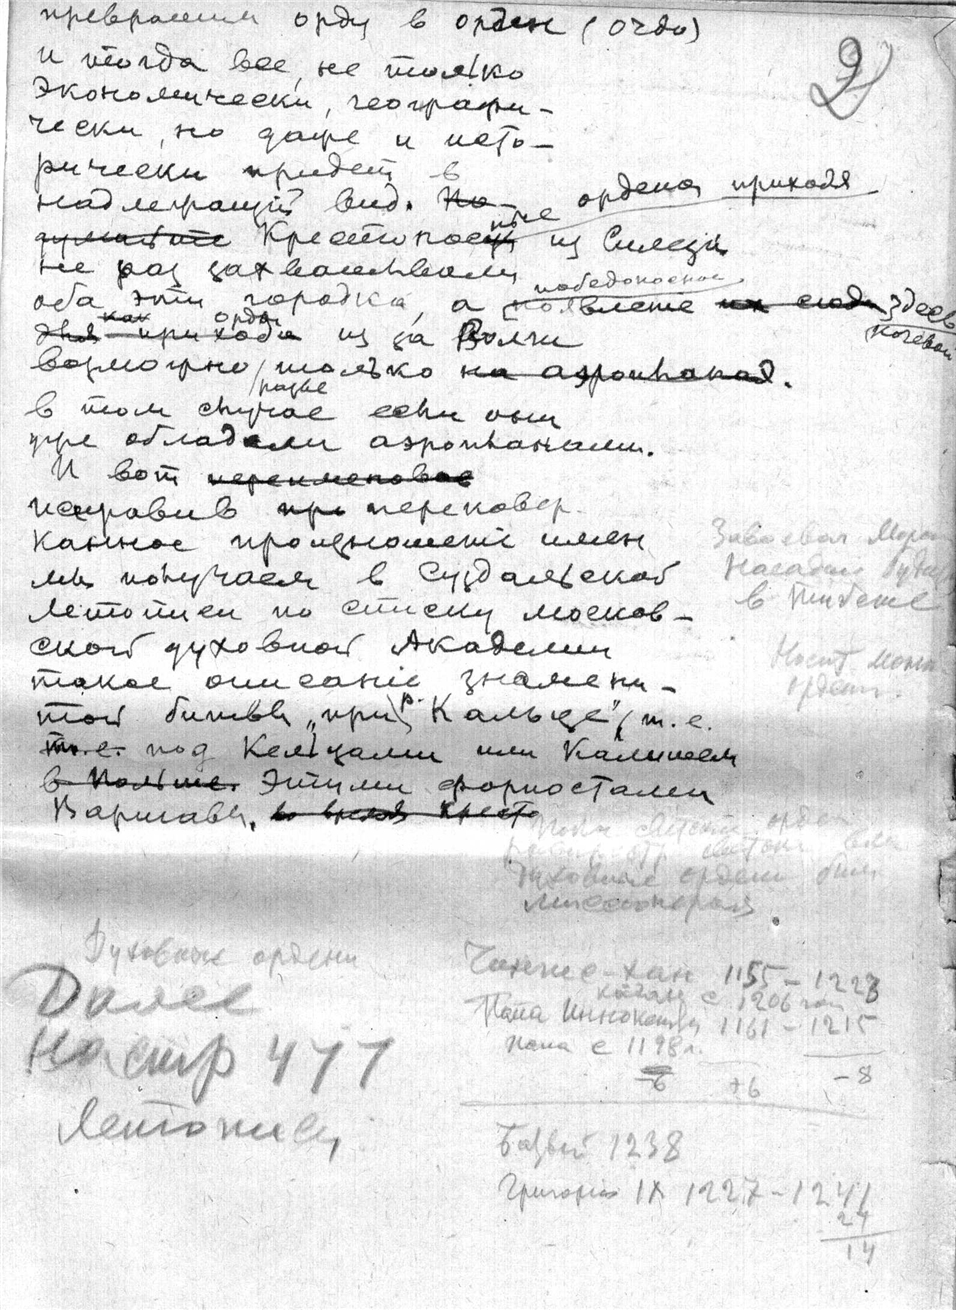 превратим орду в орден (ordo)
2)
и тогда все, не только
экономически, географи-
чески, но даже и исто-
рически придет в
надлежащий вид. Но
ордена приходя
думайте Крестоносцы из Силезии
не раз захватывали
победоносное
оба эти городка, а появление их сюда здесь
как орды кочевой
для прихода из за Волги
возможно только на аэропланах.
разве
в том случае если они
уже обладали аэропланами.
И вот переименовав
исправив пре исковер-
канное произношение имен
мы получаем в Суздальской
летописи по списку Москов-
ской духовной Академии
такое описание знамени-
той битвы „при р. Калце", т. е.
т. е. под Кельцами или Калишем
в Польше. Этими форпостами
Варшавы. во время Кресто
Завоевал
Насадил
в Тибете
Монг
орден.
светские орден
Духовные ордены были
миссионерам
Духовные ордены
Далее
На стр 477
Летописи
Чингис-хан 1155 – 1228
каган с 1206 года
Папа Иннокентий 1161 – 1215
папа с 1198 г.
-6 +6 -8
Батый 1238
Григорий IX 1227 – 1241
27
14